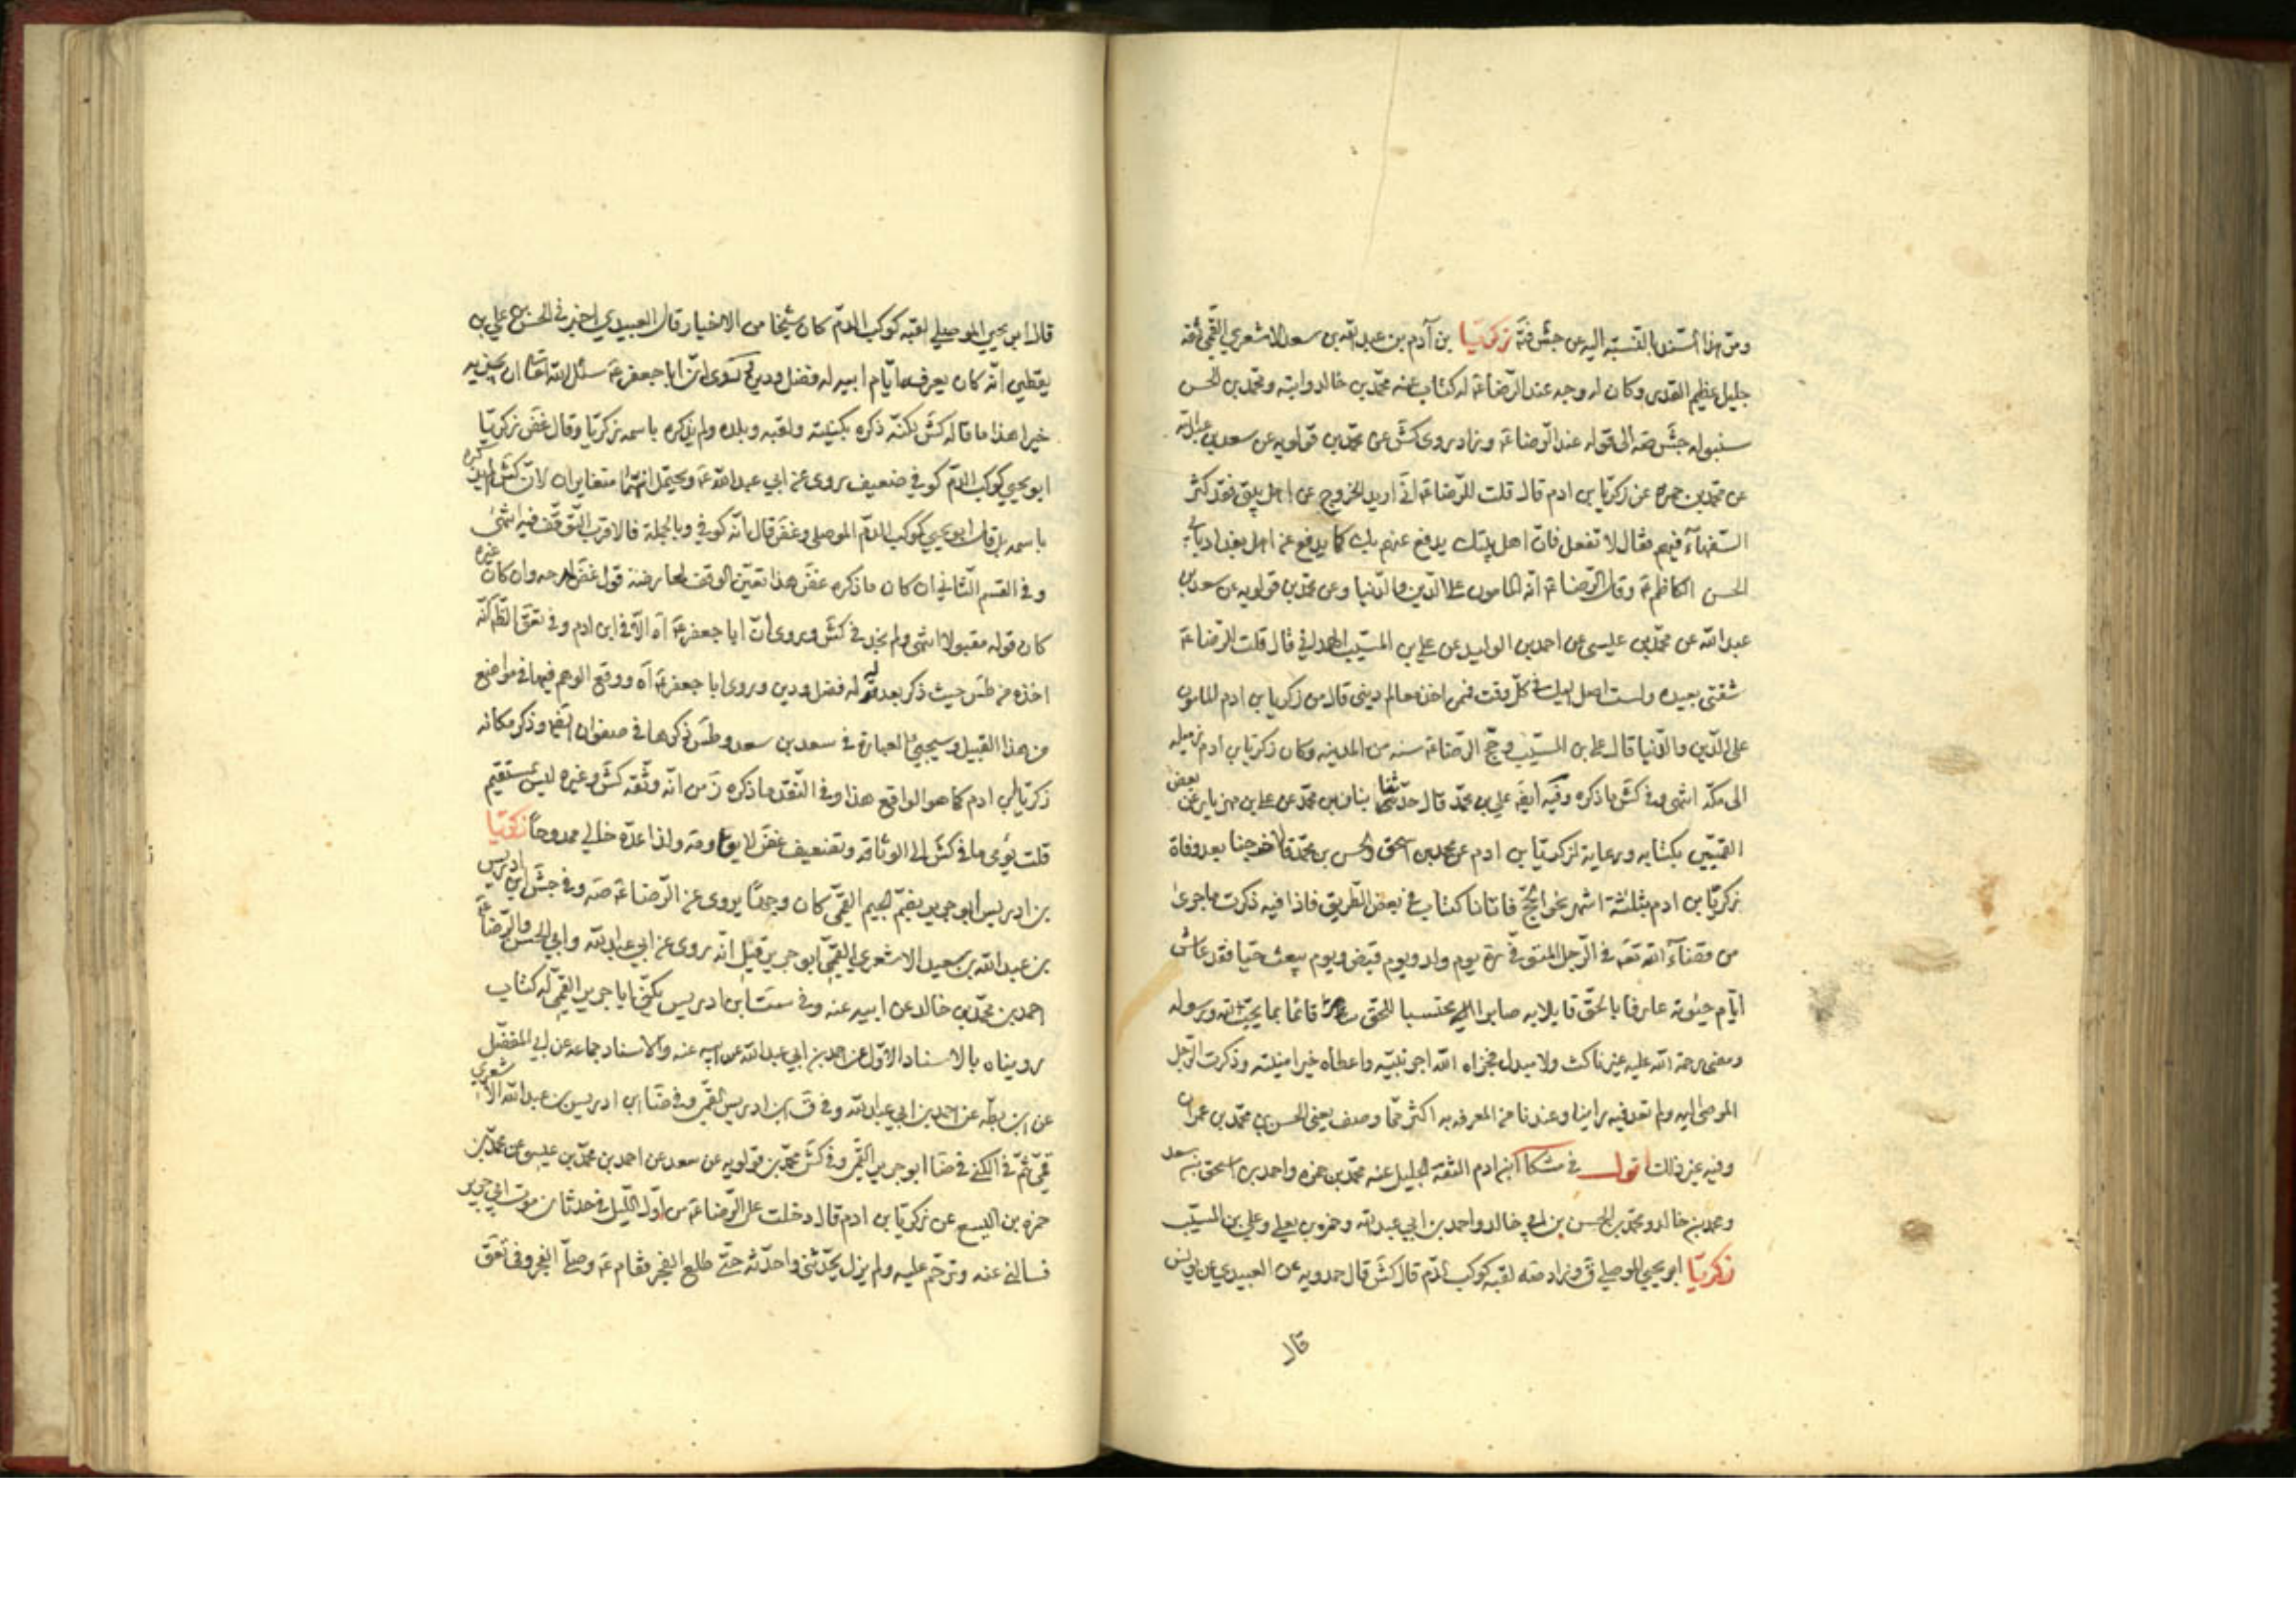 ومن هذا استدل بالنسبة اليه عن جش فتة زكريا بن آدم بن عبد الله بن سعد الاشعري القمي ثقة
جليل عظيم القدر وكان له وجه عند الرضا ع له كتاب عنه محمد بن خالد وابنه ومحمد بن الحسن
سنبوله جش صه الى قوله عند الرضا ع وزاد روى كش عن محمد بن قولويه عن سعد بن عبد الله
عن محمد بن حمزه عن زكريا بن ادم قال قلت للرضا ع اني اريد الخروج عن اهل بيتي فقد كثر
السفهاء فيهم فقال لا تفعل فان اهل بيتك يدفع عنهم بك كما يدفع عن اهل بغداد بابي
الحسن الكاظم ع وقال الرضا ع انه المامون على الدين والدنيا وعن محمد بن قولويه عن سعد بن
عبد الله عن محمد بن عيسى عن احمد بن الوليد عن علي بن المسيب الهمداني قال قلت للرضا ع
شقتي بعيده ولست اصل اليك في كل وقت فممن اخذ معالم ديني قال من زكريا بن ادم المامون
على الدين والدنيا قال علي بن المسيب وحج الرضا ع سنه من المدينه وكان زكريا بن ادم زميله
الى مكه انتهى وفي كش ما ذكره وفيه ايضا علي بن محمد قال حدثنا بنان بن محمد عن علي بن مهزيار عن بعض
القميين بكتابه ورعايه لزكريا بن ادم عن محمد بن اسحق والحسن بن محمد قالا خرجنا بعد وفاة
زكريا بن ادم بثلثة اشهر نحو الحج فاتانا كتاب في بعض الطريق فاذا فيه ذكرت ما جرى
من قضاء الله تعه في الرجل المتوفى ره يوم ولد ويوم قبض ويوم يبعث حيا فقد عاش
ايام حيوته عارفا بالحق قايلا به صابرا محتسبا للحق قائما بما يحب الله ورسوله
ومضى رحمة الله عليه غير ناكث ولا مبدل فجزاه الله اجر نيته واعطاه خير امنيته وذكرت الرجل
الموصى اليه ولم تعد فيه راينا وعندنا من المعرفه به اكثر مما وصف يعني الحسن بن محمد بن عمران
وفيه غير ذلك اقول في مشكا ابن ادم الثقه الجليل عنه محمد بن حمزه واحمد بن اسحق بن سعد
ومحمد بن خالد ومحمد بن الحسن بن ابي خالد واحمد بن ابي عبد الله وحمزه بن يعلى وعلي بن المسيب
زكريا ابو يحيى الموصلي ق وزاد صه لقبه كوكب الدم قال كش قال حمدويه عن العبيدي عن يونس
قال
قال ابو يحيى الموصلي لقبه كوكب الدم كان شيخا من الاخيار قال العبيدي اخبرني الحسن بن علي بن
يقطين انه كان يعرفه ايام ابيه له فضل ودين وروى ان ابا جعفر ع سئل الله تعا ان يجزيه
خيرا هذا ما قاله كش لكنه ذكره بكنيته ولقبه وبلده ولم يذكره باسمه زكريا وقال غض زكريا
ابو يحيى كوكب الدم كوفي ضعيف روى عن ابي عبد الله ع ويحتمل انهما متغايران لان كش لم يذكره
باسمه بل قال ابو يحيى كوكب الدم الموصلي وغض قال انه كوفي وبالجملة فالاقرب التوقف فيه انتهى
وفي القسم الثاني ان كان ما ذكره غض هذا تعين الوقف لمعارضة قول غض لمدحه وان كان غيره
كان قوله مقبولا انتهى ولم نجد في كش وروى ان ابا جعفر ع اه الا في ابن ادم وفي تعق الظ كنه
اخذه من طس حيث ذكر بعد له فضل ودين وروى ابا جعفر ع اه ووقع الوهم فيها في مواضع
من هذا القبيل وسيجيئ العبارة في سعد بن سعد وطس ذكرها في صفوان ايضا وذكر مكانه
زكريا بن ادم كما هو الواقع هذا وفي النقد ما ذكره من انه وثقه كش وغيره ليس بمستقيم
قلت يؤي ما في كش الى الوثاقه وتضعيف غض لا يقاومه ولذا عده خالي ممدوحا زكريا
بن ادريس ابو جرير بضم الجيم القمي كان وجها يروي عن الرضا ع صه وفي جش ابن ادريس
بن عبد الله بن سعيد الاشعري القمي ابو جرير قيل انه روى عن ابي عبد الله وابي الحسن والرضا ع
احمد بن محمد بن خالد عن ابيه عنه وفي ست ابن ادريس يكنى ابا جرير القمي له كتاب
رويناه بالاسناد الاول عن احمد بن ابي عبد الله عن ابيه عنه والاسناد جماعه عن ابي المفضل
عن ابن بطه عن احمد بن ابي عبد الله وفي ق ابن ادريس القمي وفي ضا ابن ادريس بن عبد الله الاشعري
قمي ثم في الكنى في ضا ابو جرير القمي وفي كش محمد بن قولويه عن سعد عن احمد بن محمد بن عيسى عن محمد بن
حمزه بن اليسع عن زكريا بن ادم قال دخلت على الرضا ع من اول الليل في حدثان موت ابي جرير
فسالني عنه وترحم عليه ولم يزل يحدثني واحدثه حتى طلع الفجر فقام ع وصلى الفجر وفي تعق